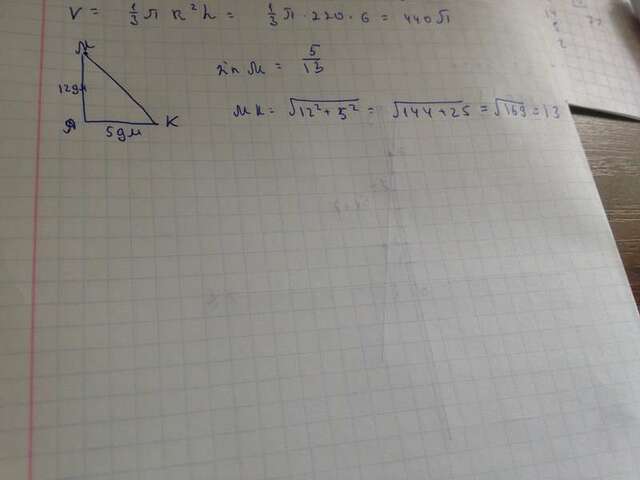 V = 1/3 π R²h = 1/3 π · 220 · 6 = 440π
M
12дм
A
5дм
K
sin M = 5/13
MK = √12² + 5² = √144 + 25 = √169 = 13